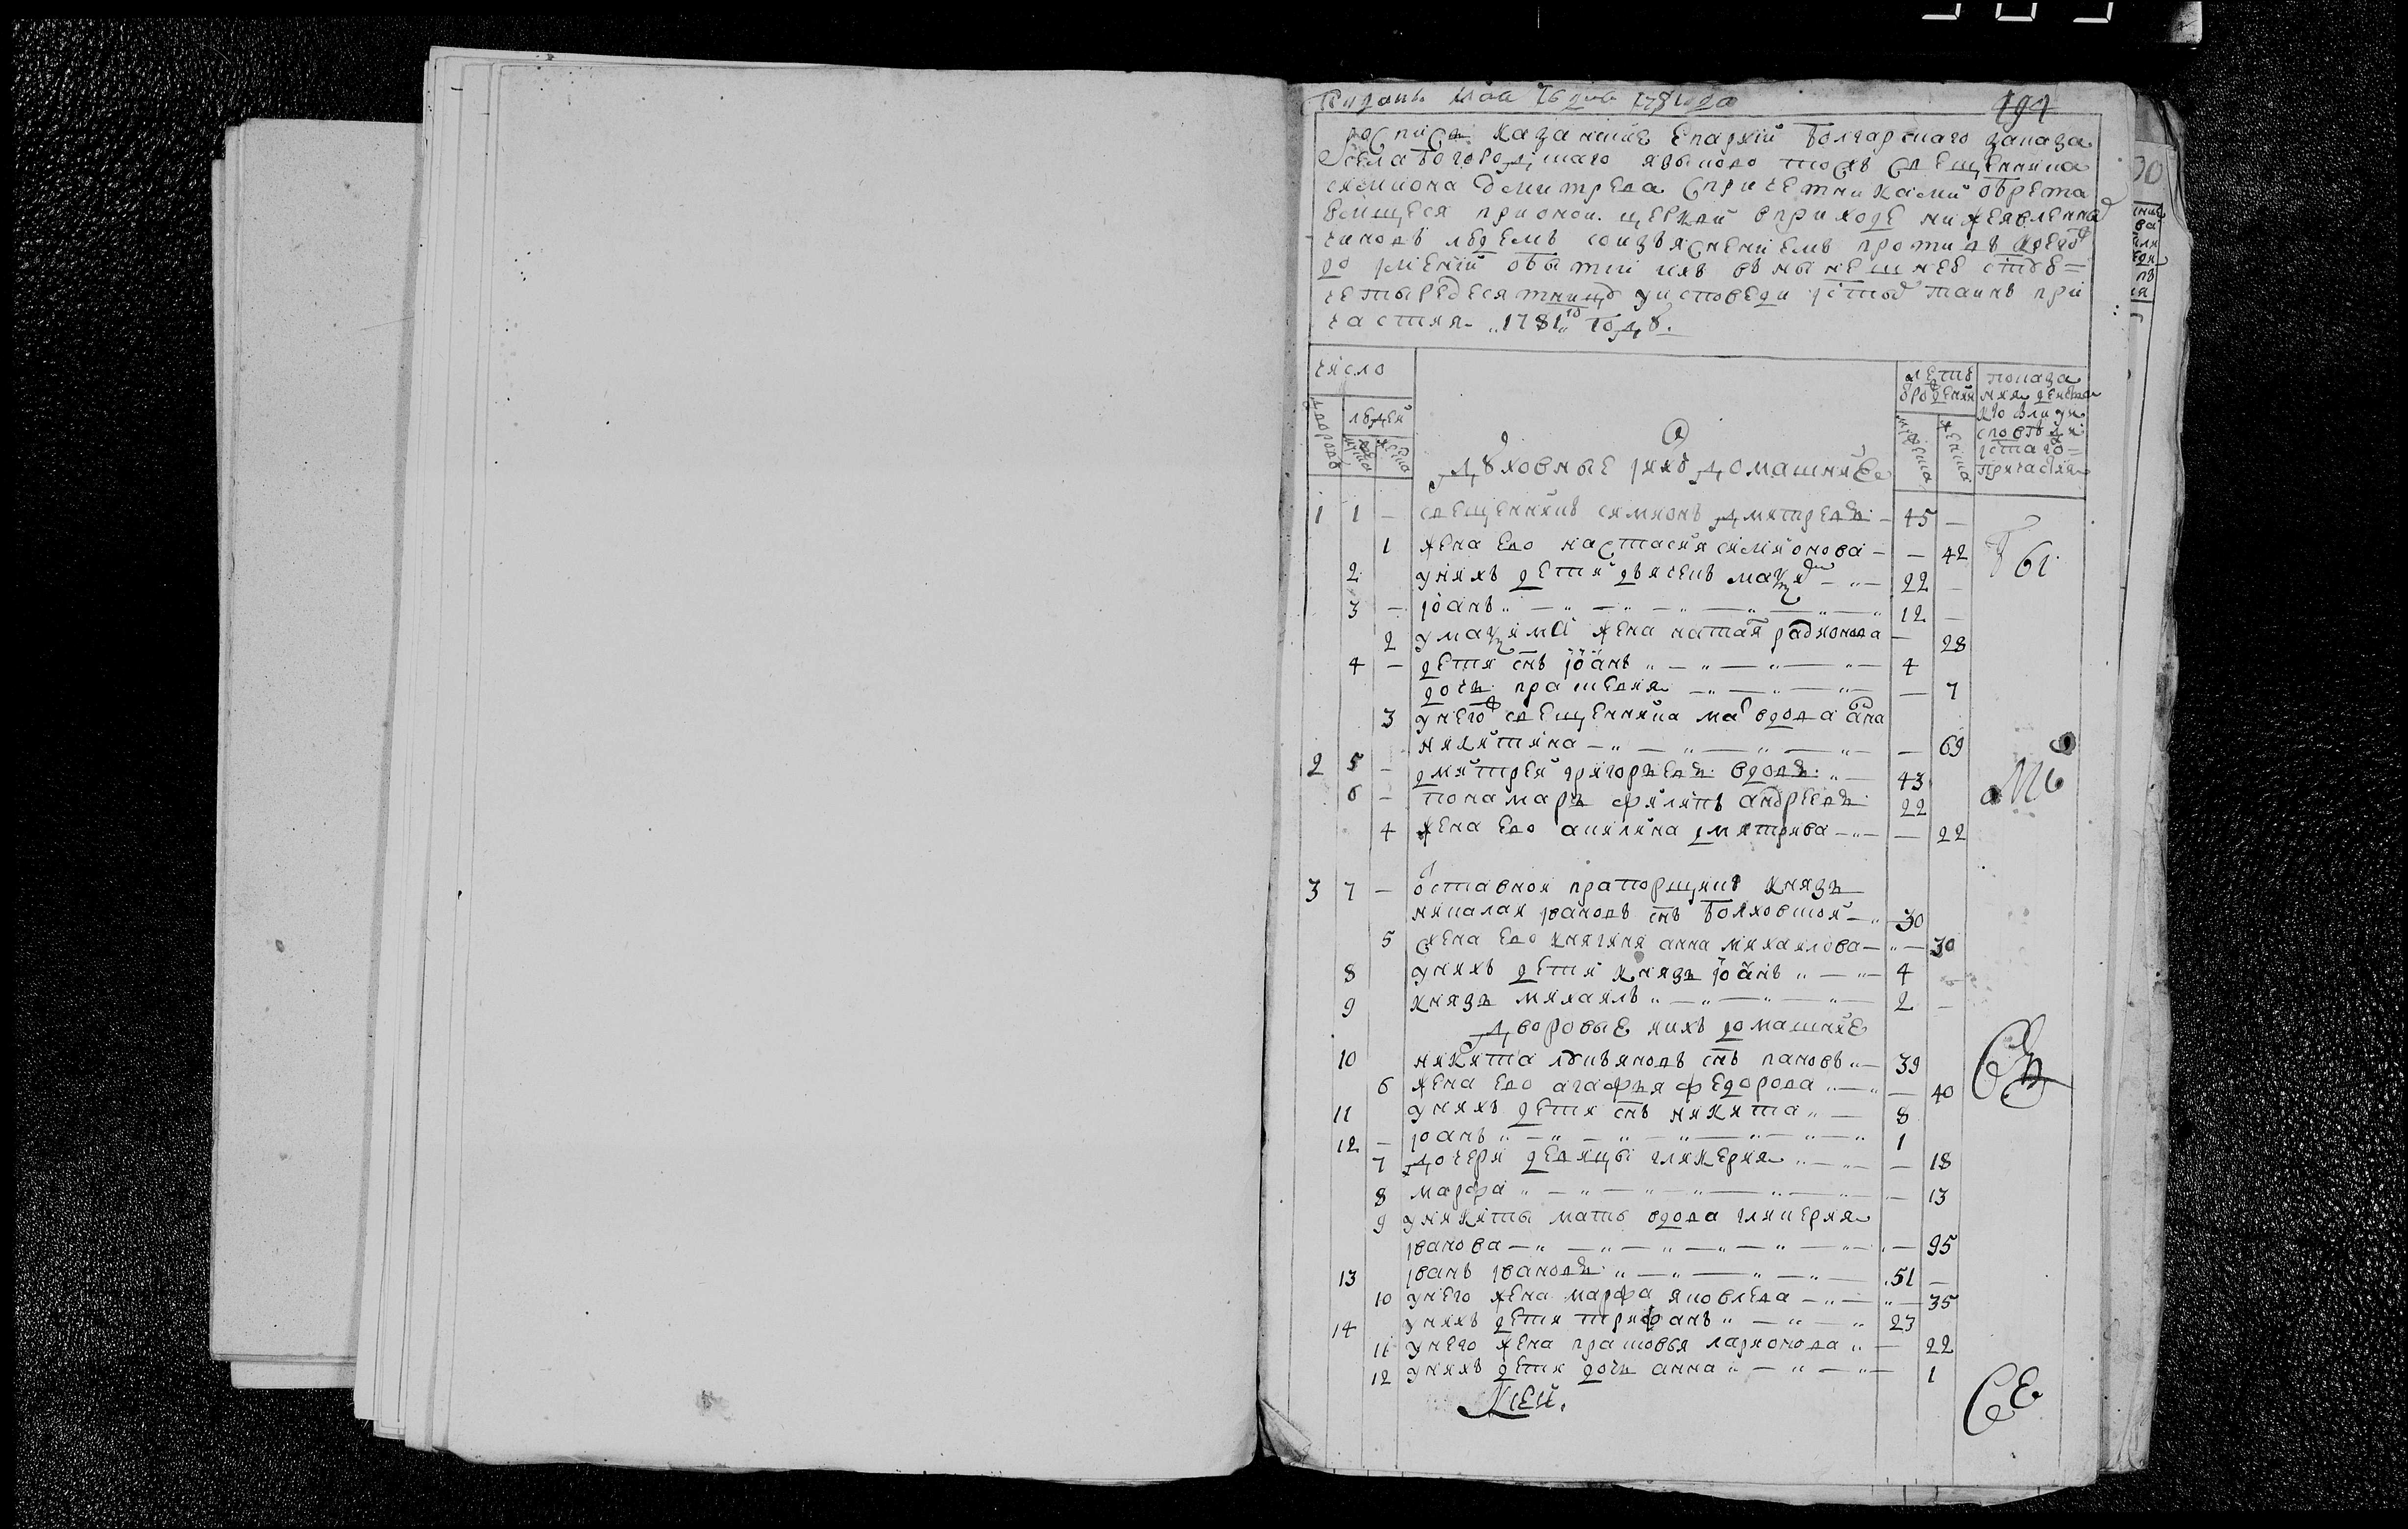 Подань Маа 16 дня 1781 года
494
роспись казанские епархии болгарского заказа
села богородцкаго явыкодо тожъ священника
симиона дмитреева спричетниками обрета
ющиеся прионой церкви вприходе нижеявленна
чиновъ людемъ соизъяснениемъ противъ коего
до имении о бытии ихъ въ нынешнею стую
четыредесятницу уисповеди и стыхъ таинъ при
частия 1781го году
число
дворовъ
людей
мужеска
женска
летъ от рождения
мужеска
женска
показа
ния действа
кто былъ у и
споведи
и стаго
причастия
Духовные и ихъ домашние
1 1 — священникъ симионъ дмитреевъ — 45 —
1 жена ево настасия симионова — — 42
2 унихъ дети дьячекъ мақимъ — 22 —
3 — иоанъ 12 —
2 умақима жена наталя радионова — 28
4 — дети снъ иоанъ 4
дочь прасковия — 7
3 унего священника ма вдова ана
никитина — 69
2 5 — дмитреи григорьевъ вдовъ 43
6 — понамарь филипъ андреевъ 22
4 жена ево акилина дмитрива — 22
3 7 — оставной прапорщикъ князь
николаи ивановъ снъ болховской — 30
5 жена ево княгиня анна михаилова — 30
8 унихъ дети князь иоанъ 4 —
9 князь михаилъ 2 —
Дворовые ихъ домашние
10 никита лукьяновъ снъ пановъ 39
6 жена ево агафья федорова — 40
11 унихъ дети снъ никита 8
12 — иоанъ 1
7 дочери девицы гликерия — 18
8 марфа — 13
9 уникиты мать вдова гликерия
иванова — 95
13 иванъ ивановъ 51 —
10 унего жена марфа яковлева — 35
14 унихъ дети трифанъ 23
11 унего жена прасковья ларионова — 22
12 унихъ дети дочь анна 1